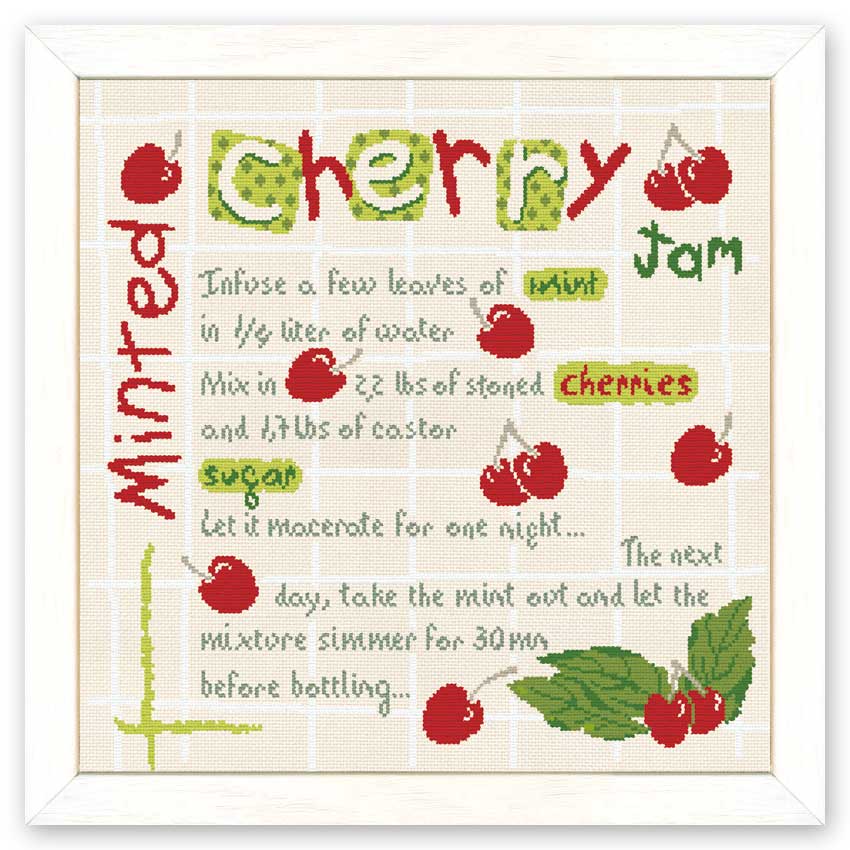 Cherry
Jam
Minted
Infuse a few leaves of mint
in 1/4 liter of water
Mix in 2,2 lbs of stoned cherries
and 1,7 lbs of castor
sugar
Let it macerate for one night...
The next
day, take the mint out and let the
mixture simmer for 30 mn
before bottling...